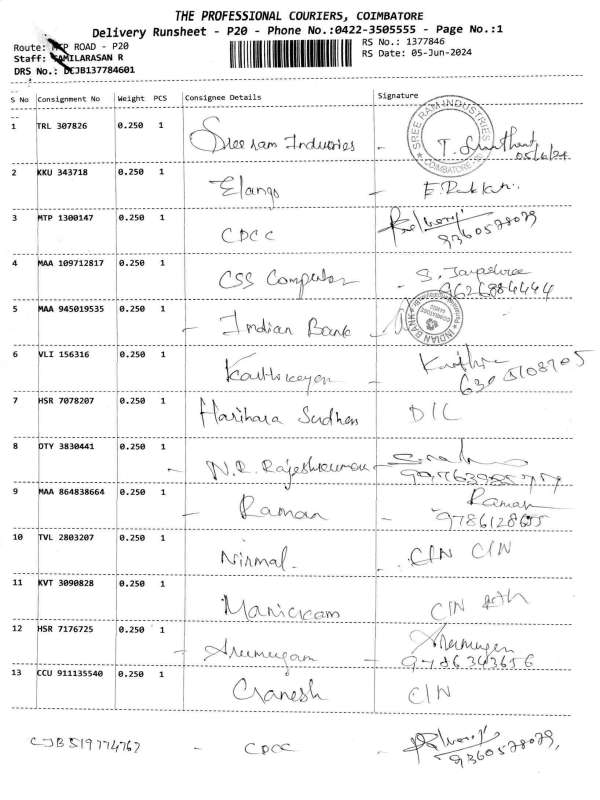 THE PROFESSIONAL COURIERS, COIMBATORE
Delivery Runsheet - P20 - Phone No.:0422-3505555 - Page No.:1
Route: MTP ROAD - P20
RS No.: 1377846
Staff: TAMILARASAN R
RS Date: 05-Jun-2024
DRS No.: DCJB137784601
S No Consignment No Weight PCS Consignee Details Signature
1 TRL 307826 0.250 1 Sree ram Industries - SREE RAM INDUSTRIES COIMBATORE T.
05/6/24
2 KKU 343718 0.250 1 Elango -
3 MTP 1300147 0.250 1 CPCC
9360578079
4 MAA 109712817 0.250 1 CSS Computer - S. Jayashree
9626884444
5 MAA 945019535 0.250 1 - Indian Bank - INDIAN BANK
6 VLI 156316 0.250 1 Karthikeyan -
7 HSR 7078207 0.250 1 Harihara Sudhan D/L
8 OTY 3830441 0.250 1 - N.R. Rajeshkumar
9 MAA 864838664 0.250 1 - Raman - Raman
9786128655
10 TVL 2803207 0.250 1 Nirmal - C/N C/N
11 KVT 3090828 0.250 1 Manickam C/N
12 HSR 7176725 0.250 1 - Arumugam - Arumugam
9786343656
13 CCU 911135540 0.250 1 Ganesh C/N
CJB519774767 - CPCC -
9360578079,